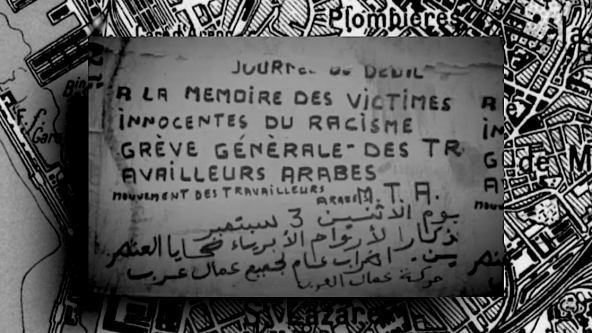 Plombières
la
JOURNEE DE DEUIL
A LA MEMOIRE DES VICTIMES
INNOCENTES DU RACISME
GRÈVE GÉNÈRALE-DES TR
AVAILLEURS ARABES
MOUVEMENT DES TRAVAILLEURS ARABES M.T.A.
يوم الاثنين 3 سبتمبر
ذكارا لأرواح الأبرياء ضحايا العنصر
ين. اضراب عام لجميع عمال عرب
حركة عمال العرب
A
IN
GR
A
de M
Gare
St Lazare